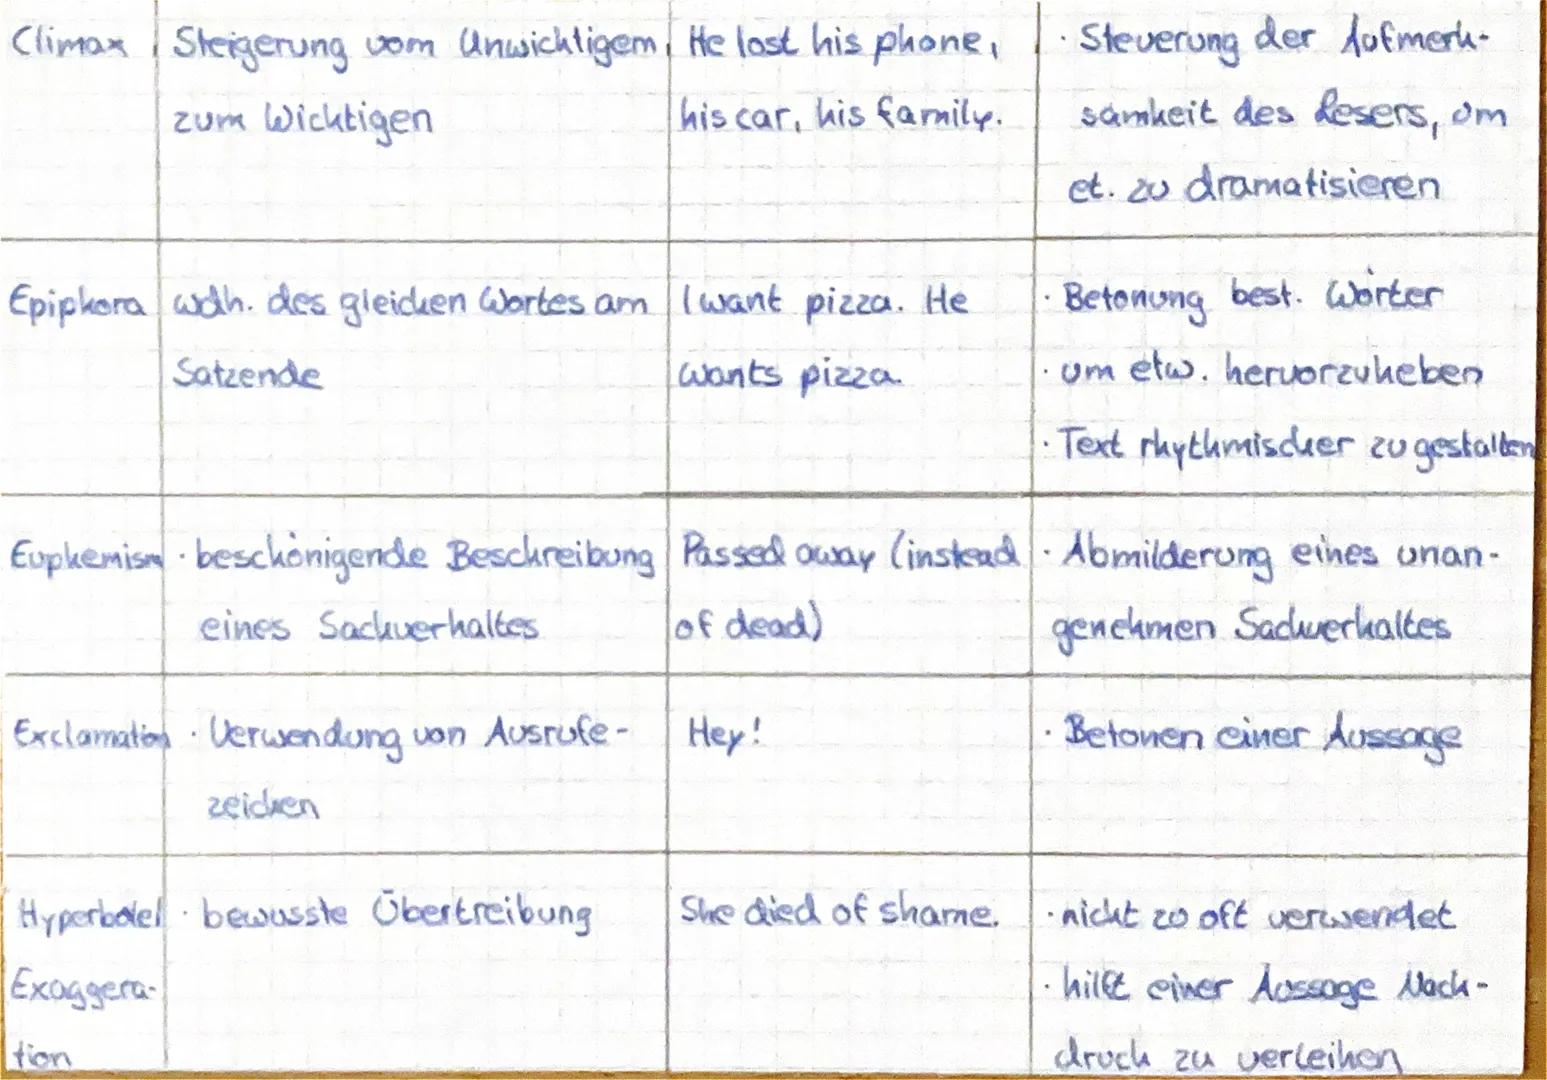 Climax Steigerung vom Unwichtigem He lost his phone, · Steuerung der Aufmerk-
zum Wichtigen his car, his family. samkeit des Lesers, um
et. zu dramatisieren
Epiphora wdh. des gleichen Wortes am I want pizza. He · Betonung best. Wörter
Satzende wants pizza. · um etw. hervorzuheben
· Text rhythmischer zu gestalten
Euphemism · beschönigende Beschreibung Passed away (instead · Abmilderung eines unan-
eines Sachverhaltes of dead) genehmen Sachverhaltes
Exclamation · Verwendung von Ausrufe- Hey! · Betonen einer Aussage
zeichen
Hyperbole/ · bewusste Übertreibung She died of shame. · nicht zu oft verwendet
Exaggera- · hilft einer Aussage Nach-
tion druck zu verleihen